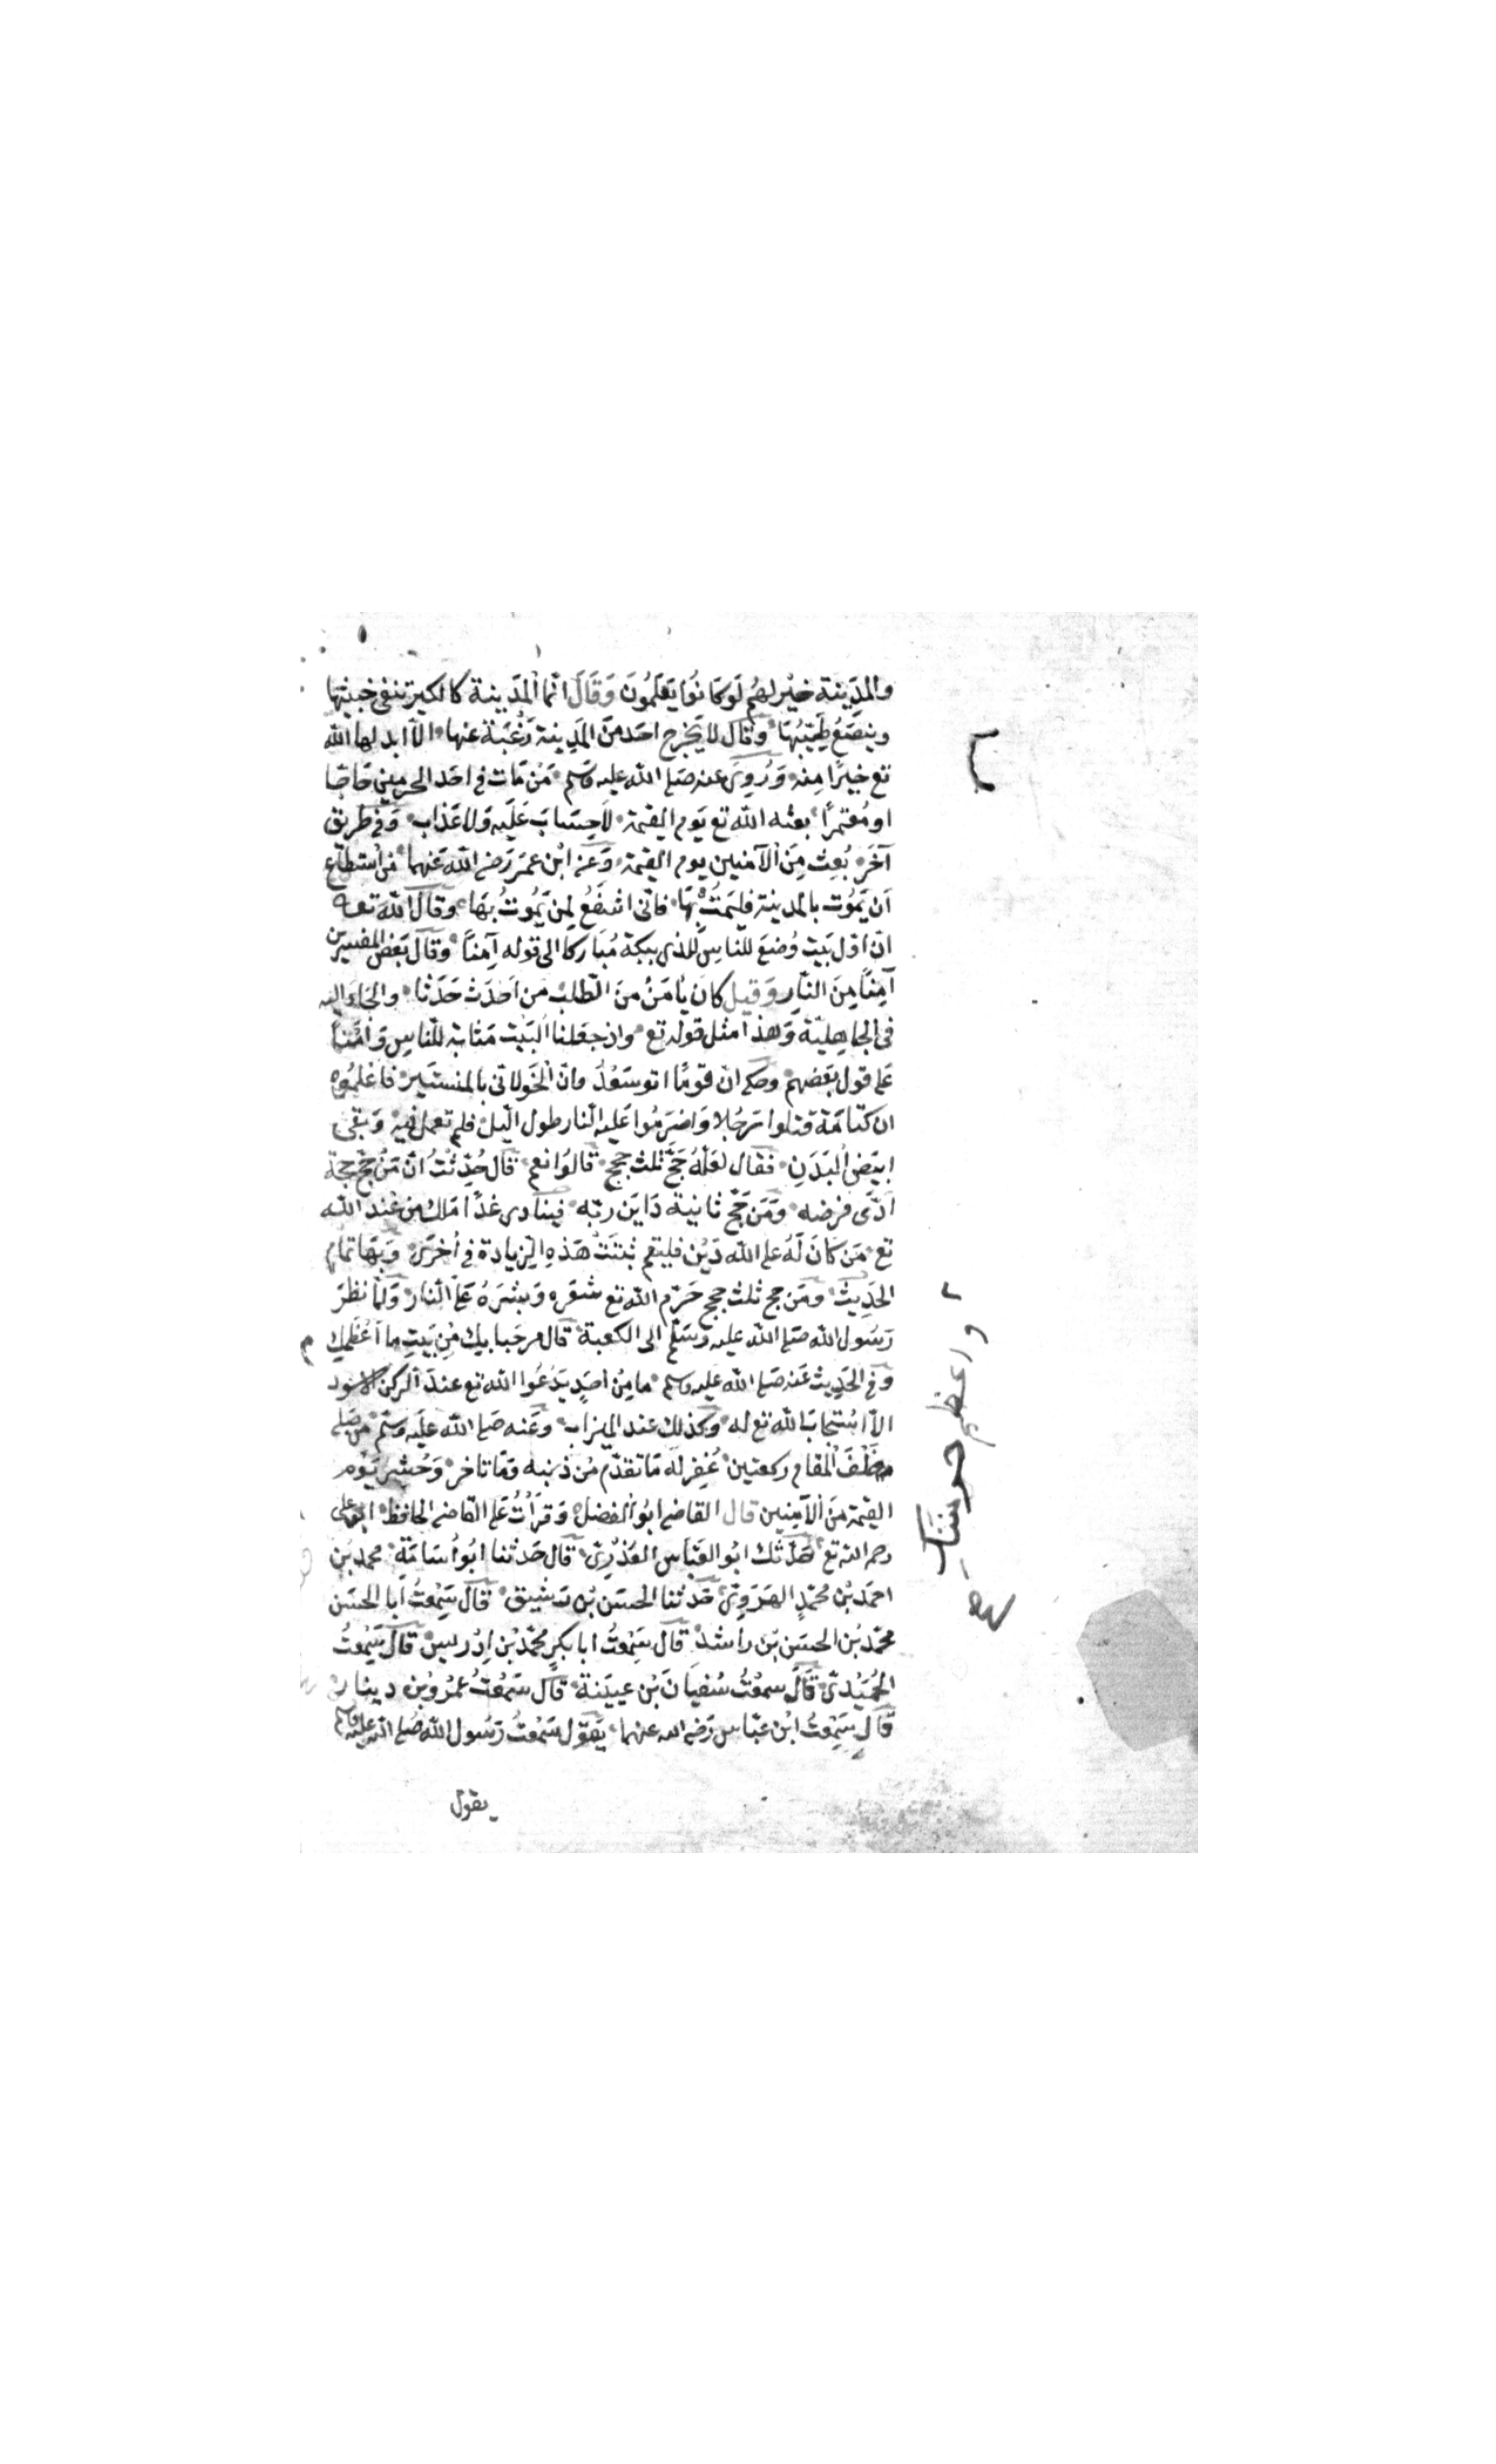 والمَدِينَة خَيْر لهُم لَوكَانُوا يَعْلَمُونَ وَقَالَ انّما المَدينة كالكير تنفى خبثها
وينصَعُ طَيّبُهَا وقَال لا يَخرج احَد منَ المَدِينة رَغْبَة عنها الّا ابد لها الله
تع خيرًا مِنه وَرُوِىَ عنه صَلى الله عليه وَسلم مَن مَات فى احَد الحرمين حَاجّا
او مُعْتمرًا بعثه الله تع يَوم القيمة لا حِسَابَ عَلَيْه وَلا عَذاب وَفى طريق
آخَر بُعِث مِنَ الآمنين يوم القيمة وَعَن ابْن عمَر رَضى الله عَنهما من استطاع
اَن يَمُوت بالمدينة فليَمُتْ بِهَا فانّى اشفَعُ لِمَن يَمُوتُ بهَا وقال الله تعا
انّ اوّل بَيت وُضعَ للناسِ للذى ببكة مُبَاركا الى قوله آمِناً وقَال بَعْض المفسرين
آمِناً مِنَ النّارِ وَقيل كان يأمَنُ منَ الطلب من اَحْدَث حَدَثا والجَأ اليه
فى الجاهِليّة وَهذا مثل قوله تع واذ جعَلنا البَيْت مَثابة للنّاسِ وَامْناً
عَلى قول بَعَضهم وحكى انّ قومًا اتو سَعْدُ ون الخَولانى بالمنستير فاعْلمُوه
ان كتَامَة قتلوا رَجُلا وَاضرَمُوا عَلَيه النّار طول الّيل فلم تعمل فيه وَبَقى
ابيَض البَدَنِ فقال لعَلهُ حَجّ ثلث حجج قالوُا نعم قَال حُدِّثتُ انّ مَن حَجّ حجّة
اَدّى فرضه وَمَن حَجّ ثانية دَاين ربّه فينَادى غدًا مَلك من عند الله
تع مَن كانَ لَهُ على الله دَيْن فليقم ثبتَتْ هَذِهِ الزيادة فى اُخرَى وَبِهَا تمام
الحَدِيث ومَن حج ثلث حجج حَرّم الله تع شعَره وَبشَرهُ عَلى النار وَلمّا نظرَ
رَسُول الله صَلى الله عليه وسَلّم الى الكعبة قال مرحَبا بِك مِنْ بَيتٍ ما اَعْظَمَك
وَفى الحَدِيث عَنه صَلى الله عليه وسلم ما مِنْ احَدٍ يَدْعُوا الله تع عندَ الركن الاسود
الّا اسْتجَابَ الله تع له وكذلك عند الميزاب وعَنه صَلى الله عليَه وسَلّم من صَلى
خَلْفَ المقام ركعتين غُفِر له مَا تقدّم مِن ذنبه ومَا تاخر وَحُشِر يَوم
القيمة مِنَ الآمِنِين قال القاضى ابُو الفضل وَقرَأتُ عَلى القاضى الحافظ ابى على
رحمه الله تع حَدّثك ابُو العَبّاس العُذرِىّ قَال حَدثنا ابُو اُسَامَة محمد بن
احمَد بْن مُحمّدٍ الهَرَوِىّ حَدثنا الحسَن بْن رَشيق قَال سَمِعْتُ اَبا الحسَن
محمّد بْن الحسَن بن راشد قَال سَمِعْتُ ابا بكرٍ محمّد بْن اِدْريس قَال سَمِعْتُ
الحُمَيْدىّ قَالَ سمعْتُ سُفيَانَ بْن عيَينة قَال سَمعْتُ عَمْرو بْن دينار
قَال سَمِعْتُ ابْن عبّاس رَضى الله عنهما يَقوَل سَمعْتُ رَسُول الله صَلى الله عليه وسلم
يقول